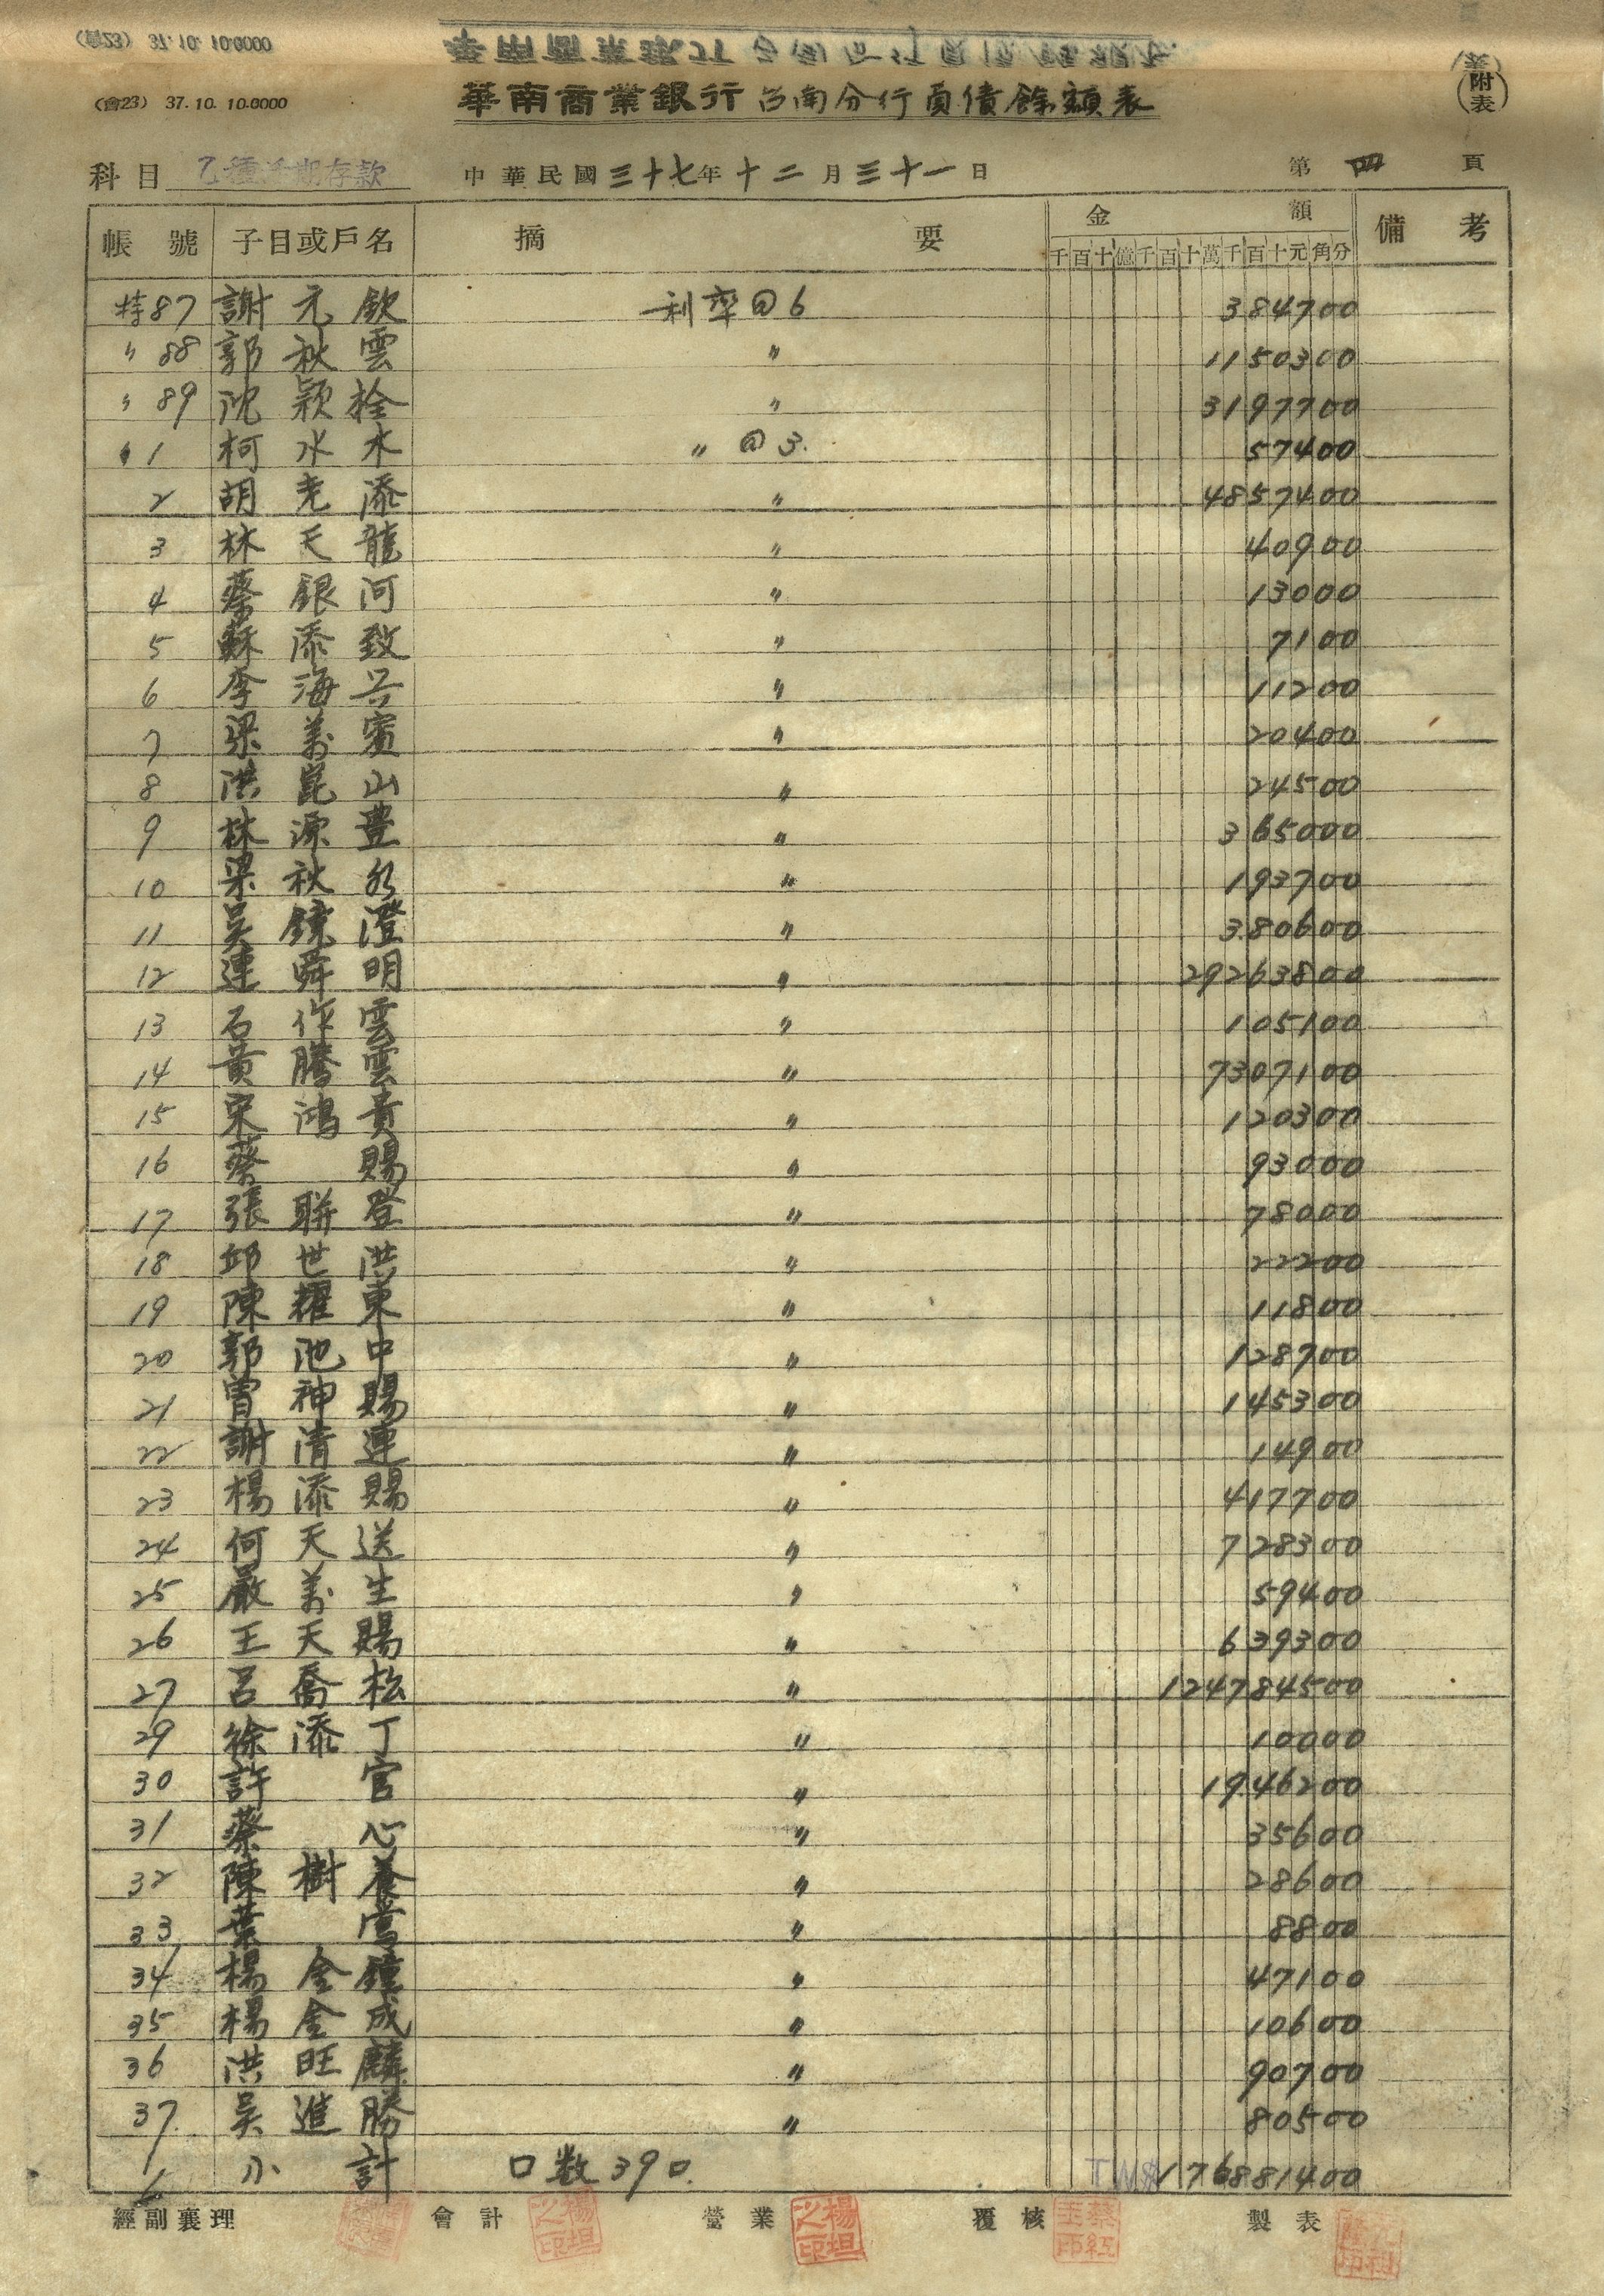 (會23) 37.10.10.6000
華南商業銀行台南分行負債餘額表
(附表)
科目 乙種活期存款 中華民國三十七年十二月三十一日 第四頁
帳號 子目或戶名 摘要 金額 備考
千百十億千百十萬千百十元角分
特87 謝元欽 利率@6 384700
〃88 郭秋雲 〃 1150300
〃89 沈穎栓 〃 3197700
1 柯水木 〃@3. 57400
2 胡老添 〃 4857400
3 林天龍 〃 40900
4 蔡銀河 〃 13000
5 蘇添致 〃 7100
6 李海兴 〃 11200
7 梁萬賓 〃 20400
8 洪崑山 〃 24500
9 林源豊 〃 365000
10 梁秋永 〃 193700
11 吳鏡澄 〃 380600
12 連舜明 〃 29263800
13 石作雲 〃 105100
14 黃騰雲 〃 7307100
15 宋鴻貴 〃 120300
16 蔡賜 〃 93000
17 張聯登 〃 78000
18 邱世洪 〃 22200
19 陳耀東 〃 11800
20 郭池中 〃 128700
21 曾神賜 〃 145300
22 謝清連 〃 14900
23 楊添賜 〃 417700
24 何天送 〃 728300
25 嚴萬生 〃 59400
26 王天賜 〃 639300
27 呂喬松 〃 124784500
29 徐添丁 〃 10000
30 許官 〃 1946200
31 蔡心 〃 35600
32 陳樹養 〃 28600
33 葉鶯 〃 8800
34 楊金鐘 〃 47100
35 楊金成 〃 10600
36 洪旺麟 〃 90700
37 吳進勝 〃 80500
小計 口数39口. TW$176881400
經副襄理 會計 營業 覆核 製表
楊坦之印 楊坦之印 蔡紅玉印